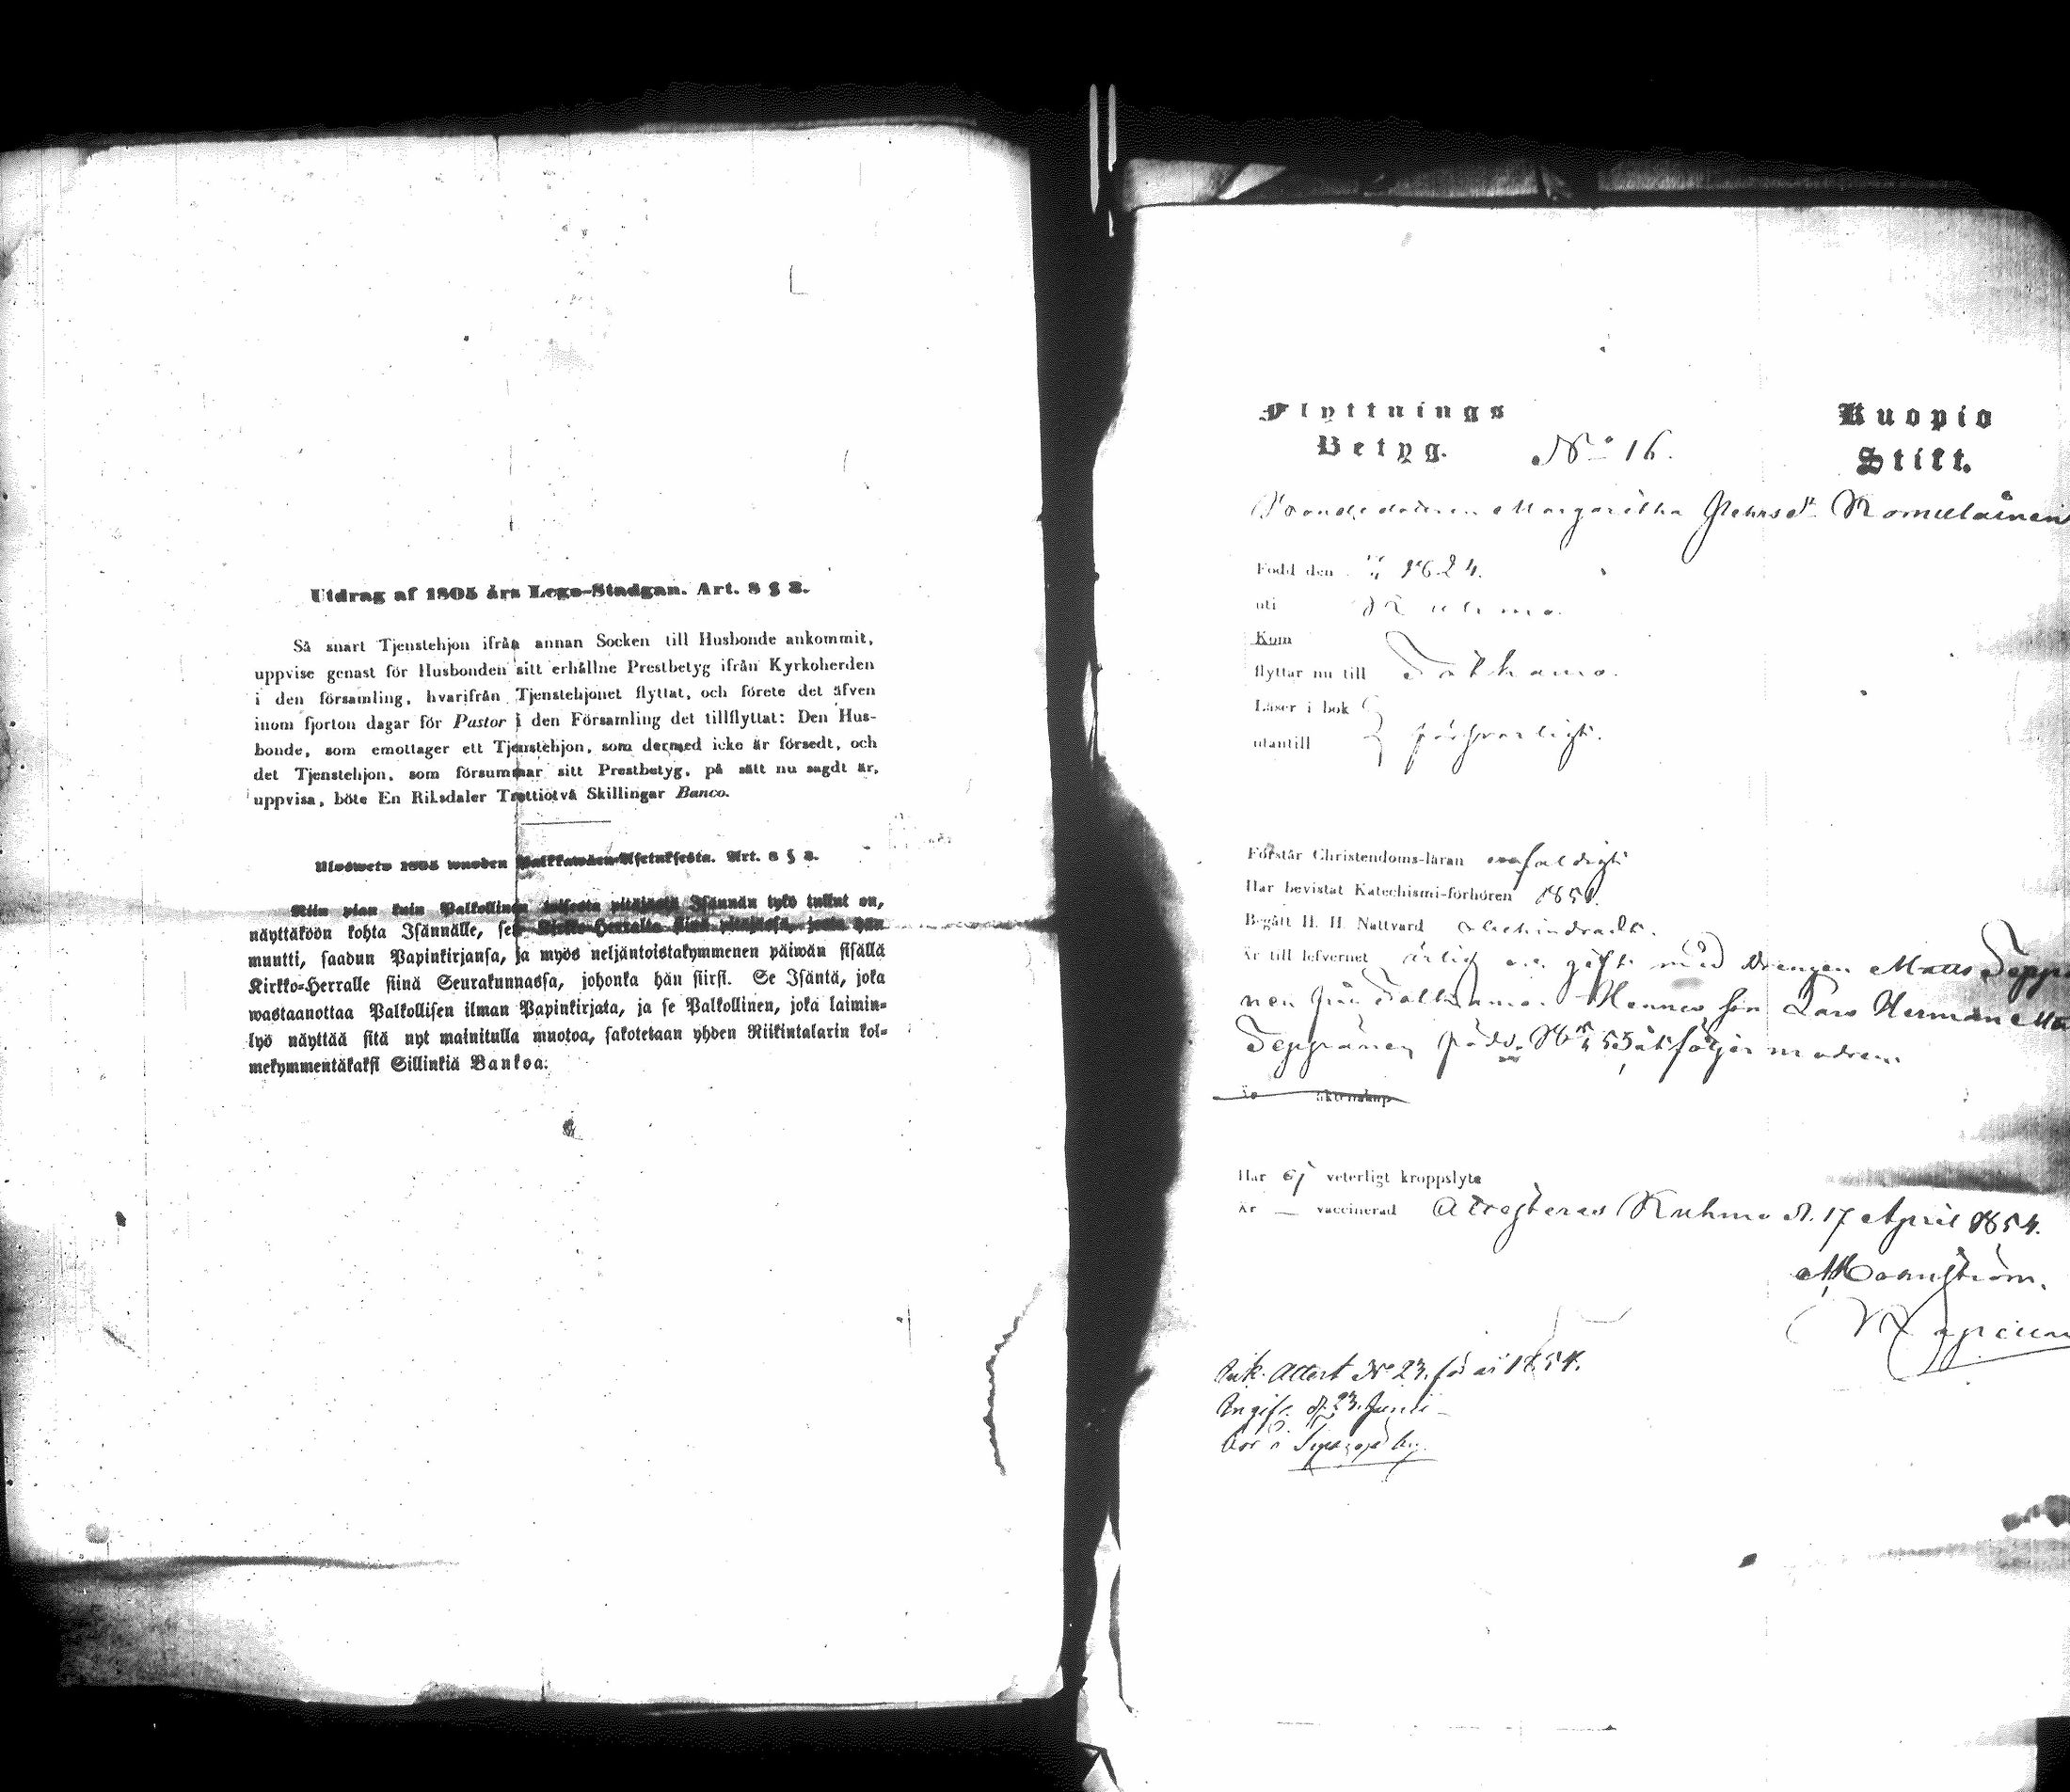 Utdrag af 1805 års Lego-Stadgan. Art. 8 § 3.
Så snart Tjenstehjon ifrån annan Socken till Husbonde ankommit,
uppvise genast för Husbonden sitt erhållne Prestbetyg ifrån Kyrkoherden
i den församling, hvarifrån Tjenstehjonet flyttat, och förete det äfven
inom fjorton dagar för Pastor i den Församling det tillflyttat: Den Hus-
bonde, som emottager ett Tjenstehjon, som dermed icke är försedt, och
det Tjenstehjon, som försummar sitt Prestbetyg, på sätt nu sagdt är,
uppvisa, böte En Riksdaler Trettiotvå Skillingar Banco.
Ulosweto 1805 wuoden Palkkawäen-Asetuksesta. Art. 8 § 3.
Niin pian kuin Palkollinen toisesta pitäjästä Isännän tykö tullut on,
näyttäköön kohta Isännälle, sen Kirkko-Herralta siinä pitäjässä, josta hän
muutti, saadun Papinkirjansa, ja myös neljäntoistakymmenen päiwän sisällä
Kirkko-Herralle siinä Seurakunnassa, johonka hän siirsi. Se Isäntä, joka
wastaanottaa Palkollisen ilman Papinkirjata, ja se Palkollinen, joka laimin-
lyö näyttää sitä nyt mainitulla muotoa, sakotetaan yhden Riikintalarin kol-
mekymmentäkaksi Sillinkiä Bankoa:
Flyttnings
Betyg. No 16.
Kuopio
Stift.
Bondedottren Margaretha Pehrsdr Romulainen
Född den 1824.
uti Kuhmo.
Kom
flyttar nu till Sotkamo.
Läser i bok
utantill försvarligt.
Förstår Christendoms-läran enfaldigt
Har bevistat Katechismi-förhören 1851.
Begått H. H. Nattvard obehindradt.
Är till lefvernet ärlig, gift med drengen Matts
nen från Sotkamo. Hennes son Lars Herman
Seppänen född åtföljer modren.
äktenskap
Har ej veterligt kroppslyte
Är — vaccinerad Attesteras Kuhmo d. 17 April 1854.
Ink. Attest No 23. för år 1854.
Ingift. d. 23. Juni